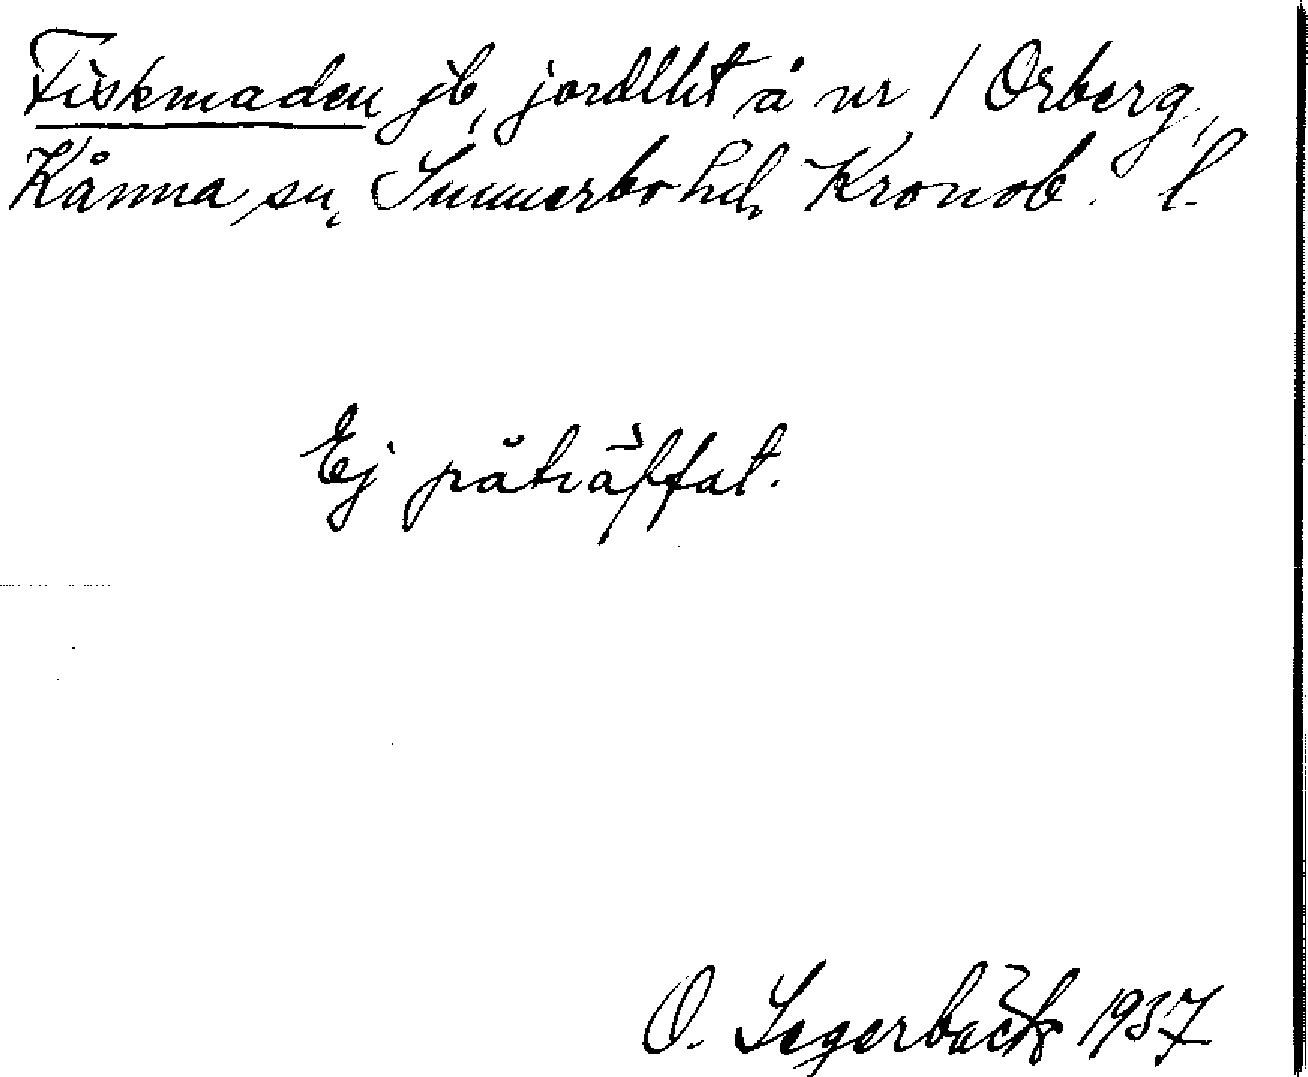 Fiskmaden jb, jordlht å nr 1 Orberg,
Kånna sn, Sunnerbo hd, Kronob. l.
Ej påträffat.
O. Segerbäck 1937